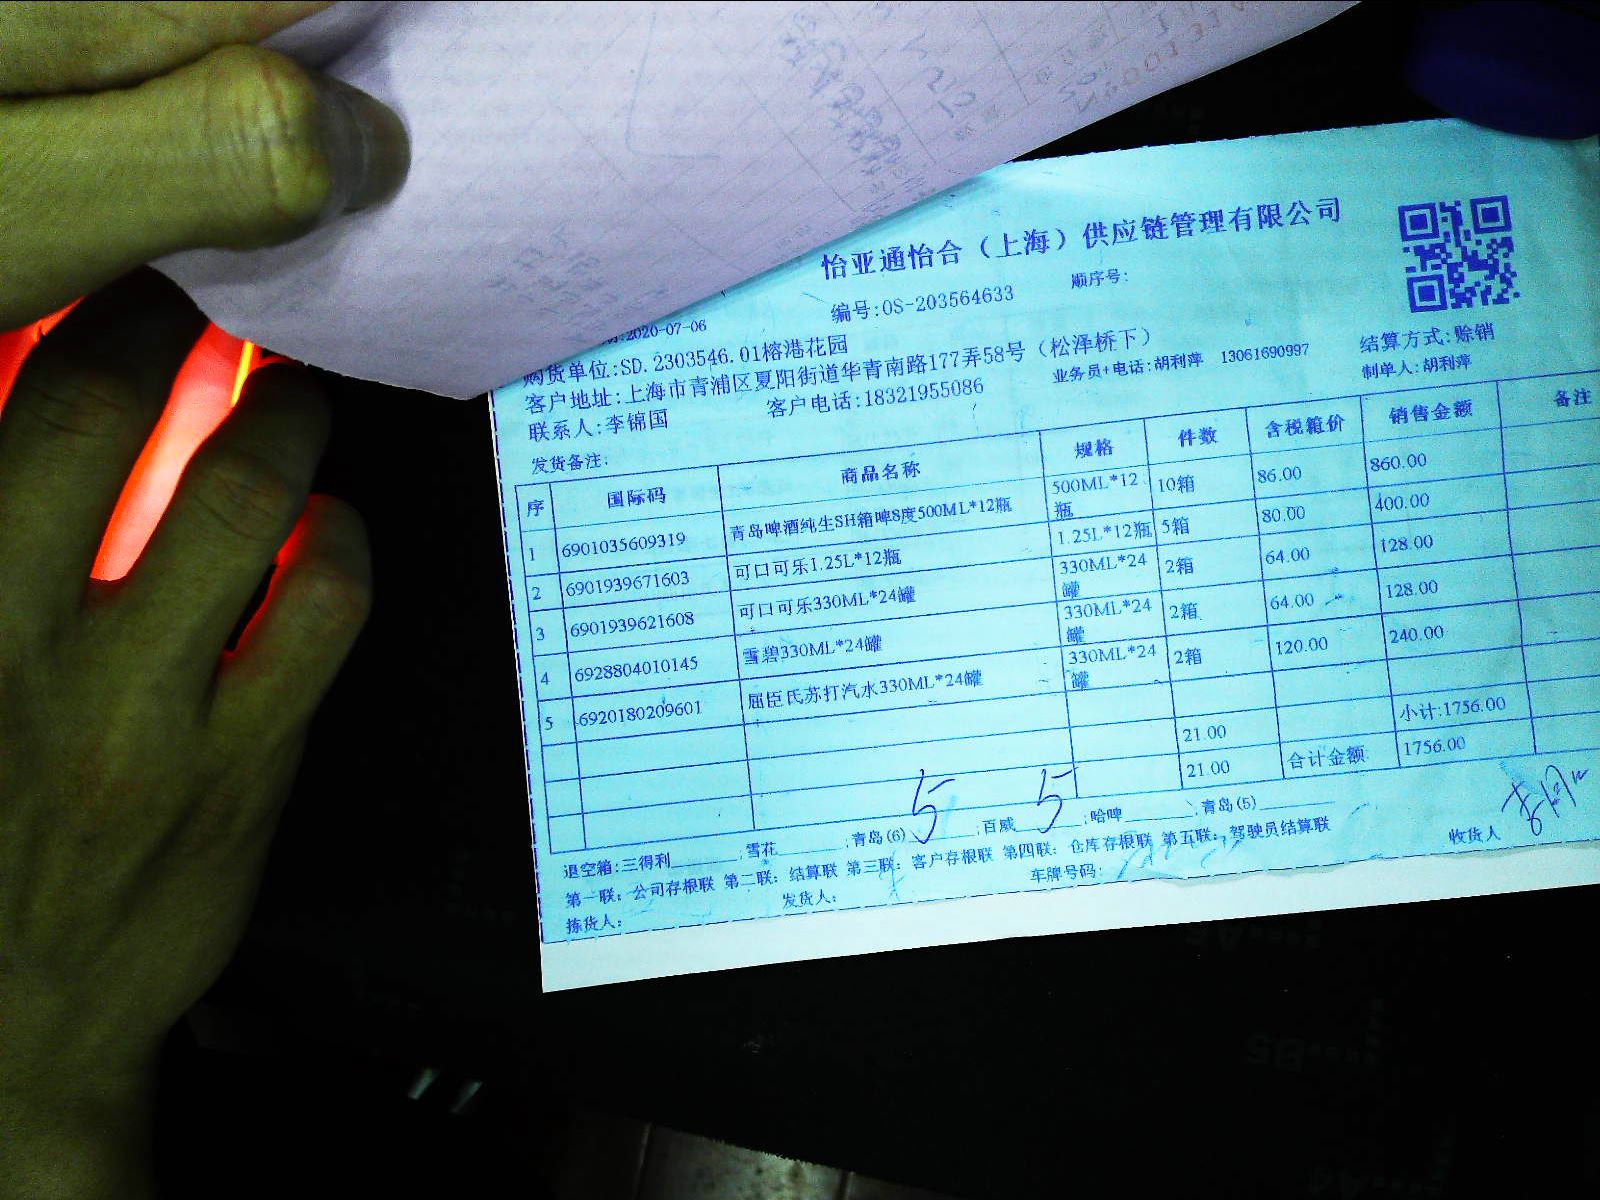 怡亚通怡合（上海）供应链管理有限公司
编号:OS-203564633 顺序号:
:2020-07-06
购货单位:SD.2303546.01榕港花园
客户地址:上海市青浦区夏阳街道华青南路177弄58号（松泽桥下）
业务员+电话:胡利萍 13061690997
结算方式:赊销
联系人:李锦国 客户电话:18321955086
制单人:胡利萍
发货备注:
序 国际码 商品名称 规格 件数 含税箱价 销售金额 备注
1 6901035609319 青岛啤酒纯生SH箱啤8度500ML*12瓶 500ML*12瓶 10箱 86.00 860.00
2 6901939671603 可口可乐1.25L*12瓶 1.25L*12瓶 5箱 80.00 400.00
3 6901939621608 可口可乐330ML*24罐 330ML*24罐 2箱 64.00 128.00
4 6928804010145 雪碧330ML*24罐 330ML*24罐 2箱 64.00 128.00
5 6920180209601 屈臣氏苏打汽水330ML*24罐 330ML*24罐 2箱 120.00 240.00
21.00 小计:1756.00
21.00 合计金额: 1756.00
退空箱:三得利______;雪花______;青岛(6) 5 ;百威 5 ;哈啤______;青岛(5)______
第一联：公司存根联 第二联：结算联 第三联：客户存根联 第四联：仓库存根联 第五联：驾驶员结算联
拣货人： 发货人： 车牌号码： 收货人